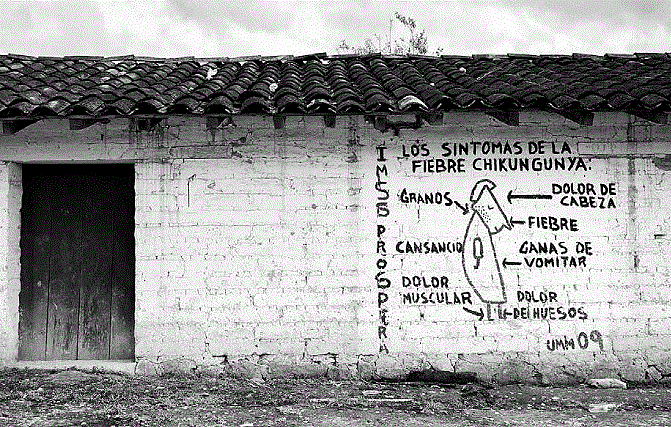 IMSS PROSPERA
LOS SINTOMAS DE LA
FIEBRE CHIKUNGUNYA:
GRANOS
DOLOR DE
CABEZA
FIEBRE
CANSANCIO
GANAS DE
VOMITAR
DOLOR
MUSCULAR
DOLOR
DE HUESOS
UMM 09